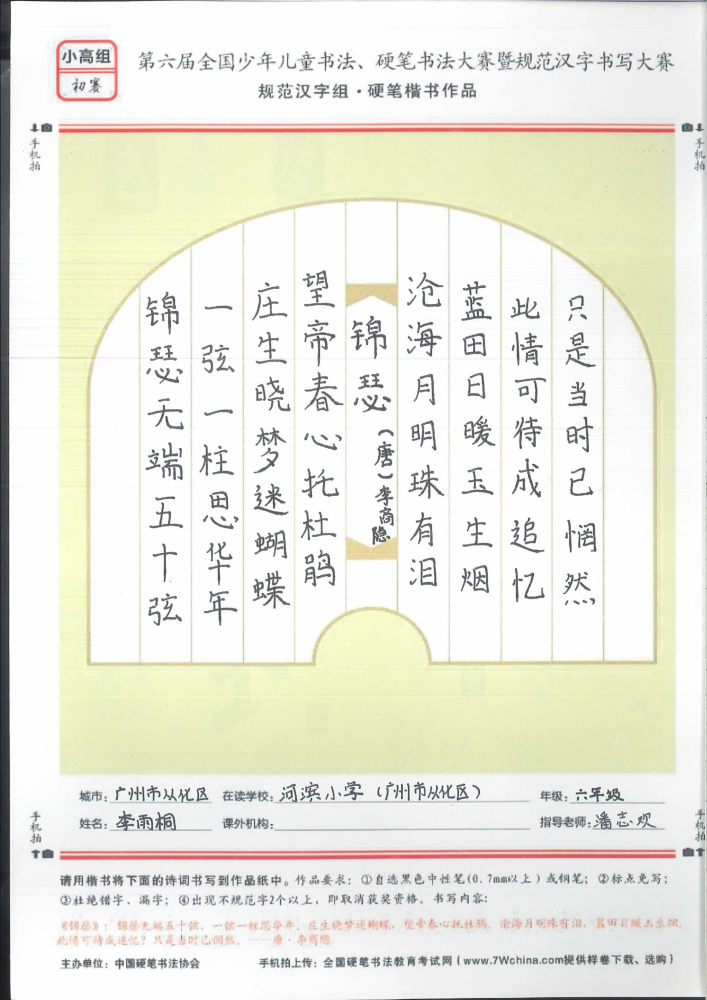 小高组
初赛
第六届全国少年儿童书法、硬笔书法大赛暨规范汉字书写大赛
规范汉字组·硬笔楷书作品
手机拍
手机拍
锦瑟无端五十弦
一弦一柱思华年
庄生晓梦迷蝴蝶
望帝春心托杜鹃
锦瑟(唐)李商隐
沧海月明珠有泪
蓝田日暖玉生烟
此情可待成追忆
只是当时已惘然
城市:广州市从化区 在读学校:河滨小学(广州市从化区) 年级:六年级
姓名:李雨桐 课外机构: 指导老师:潘志欢
手机拍
手机拍
请用楷书将下面的诗词书写到作品纸中。作品要求:①自选黑色中性笔(0.7mm以上)或钢笔;②标点免写;
③杜绝错字、漏字;④出现不规范字2个以上,即取消获奖资格。书写内容:
《锦瑟》:锦瑟无端五十弦,一弦一柱思华年。庄生晓梦迷蝴蝶,望帝春心托杜鹃。沧海月明珠有泪,蓝田日暖玉生烟。
此情可待成追忆?只是当时已惘然。——唐·李商隐
主办单位:中国硬笔书法协会 手机拍上传:全国硬笔书法教育考试网(www.7Wchina.com提供样卷下载、选购)